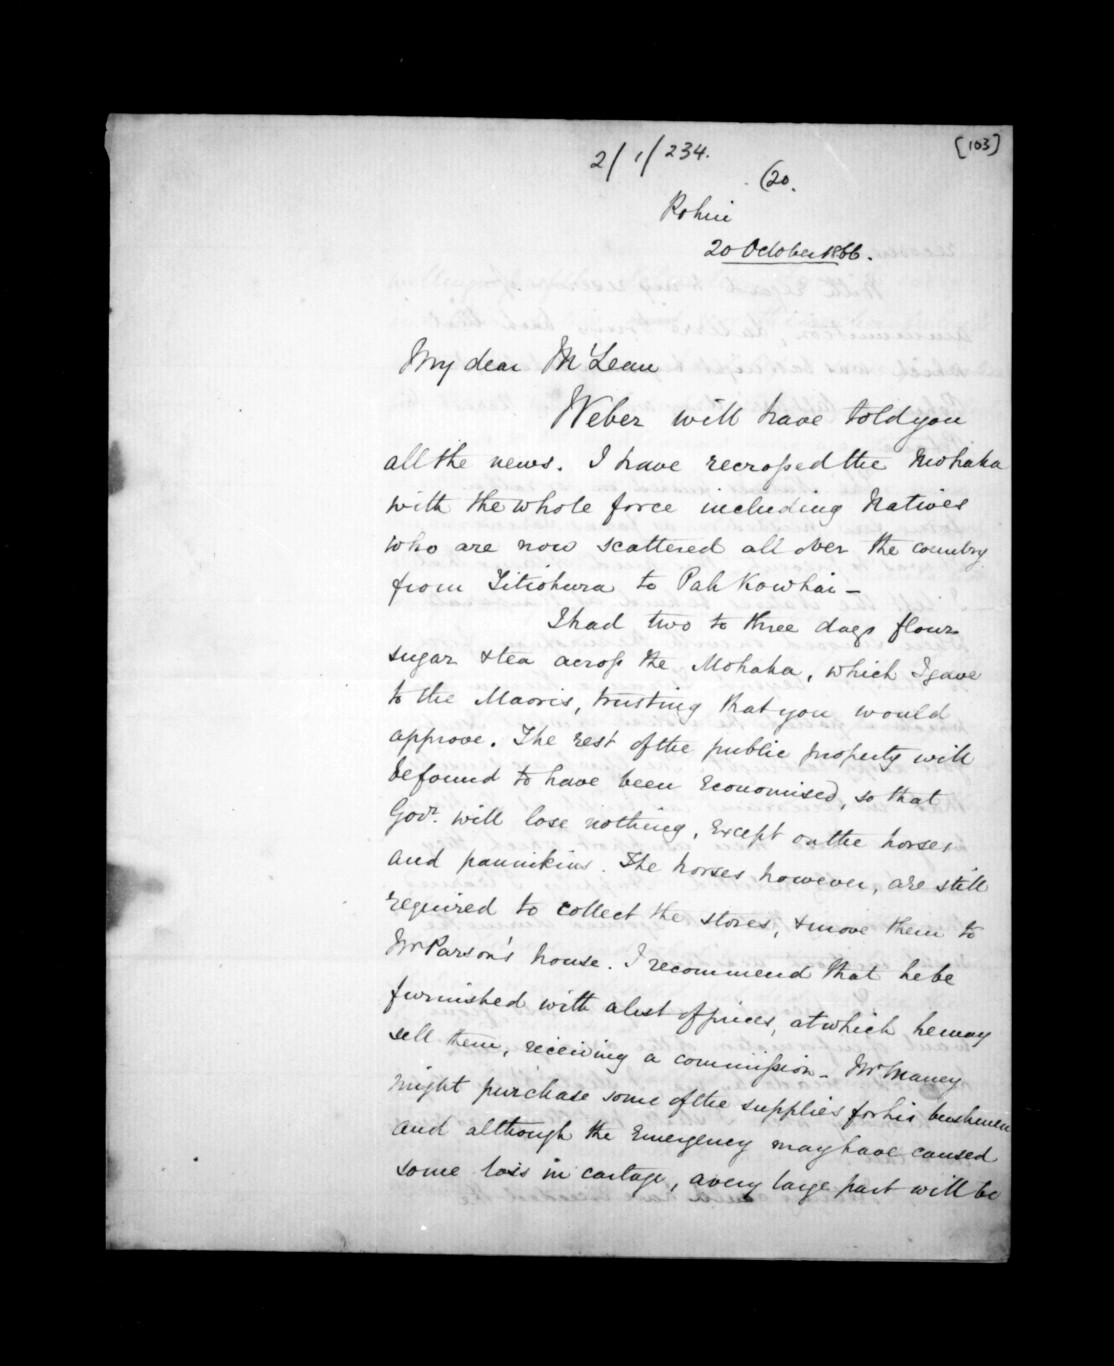 [103]
2/1/234.
(20.
Pohui
20 October 1866.
My dear McLean
Weber will have told you
all the news. I have recrossed the Mohaka
with the whole force including Natives
who are now scattered all over the country
from Titiohura to Pah Kowhai -
I had two to three days flour
sugar & tea across the Mohaka, which I gave
to the Maoris, trusting that you would
approve. The rest of the public property will
be found to have been economised, so that
Govt. will lose nothing, except on the horses
and pannikins. The horses however, are still
required to collect the stores, & move them to
Mr Parson's house. I recommend that he be
furnished with a list of prices, at which he may
sell them, receiving a commission - Mr Maney
might purchase some of the supplies for his bushmen
and although the Emergency may have caused
some loss in cartage, a very large part will be